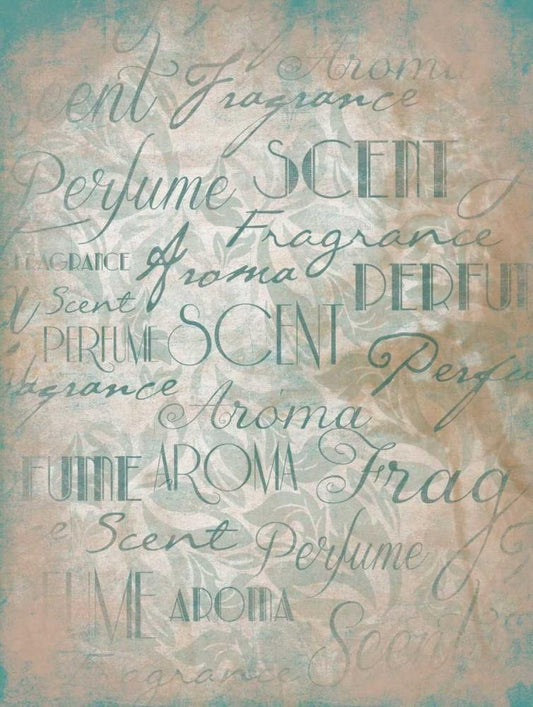 Aroma
Scent Fragrance
Perfume SCENT
Fragrance
FRAGRANCE Aroma PERFUM
Scent
PERFUME SCENT Perfu
agrance
Aroma
FUME AROMA Frag
e Scent Perfume
FUME AROMA
Scent
Fragrance